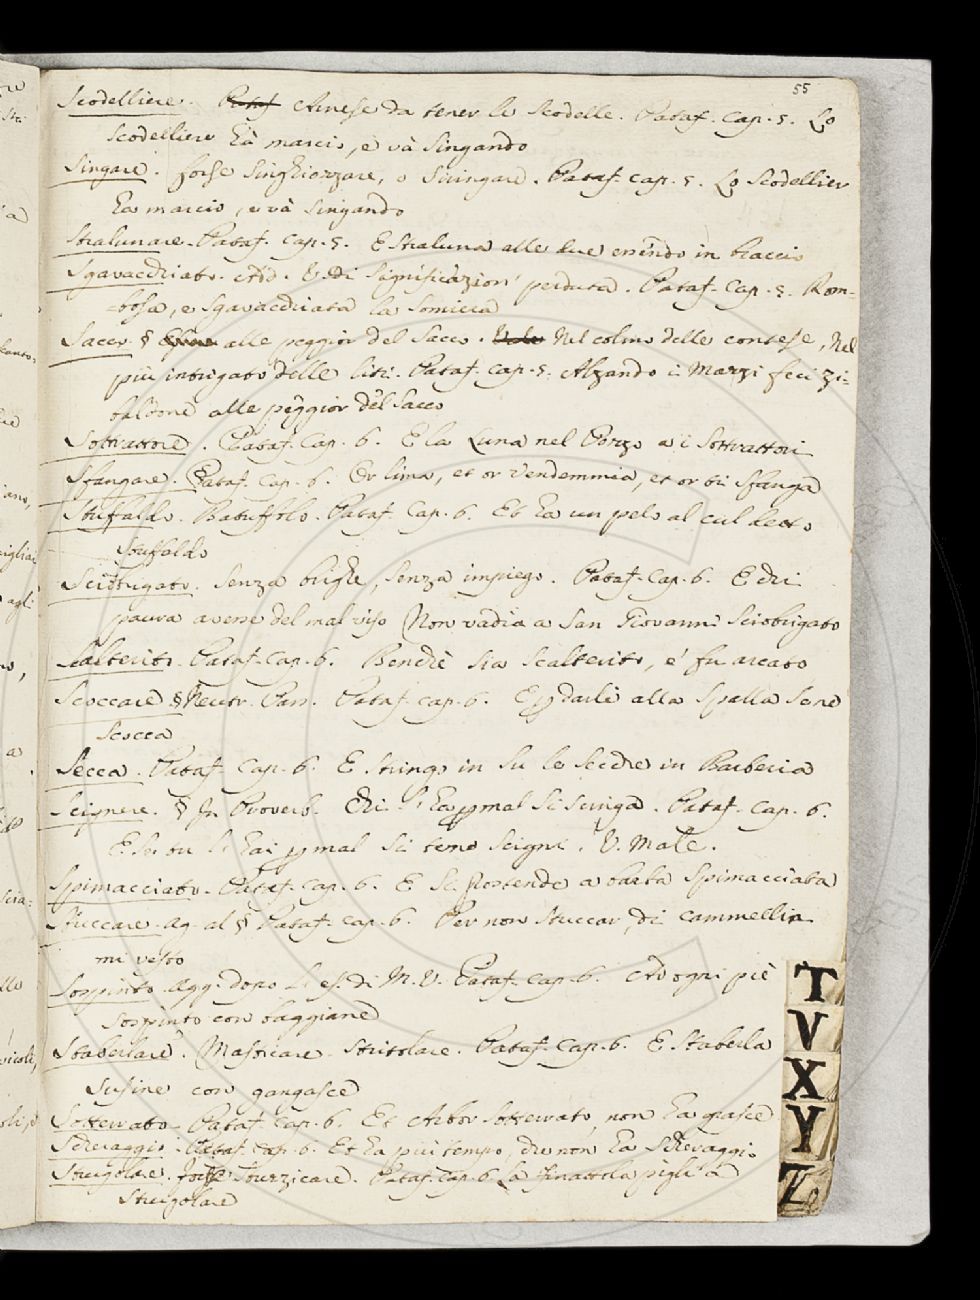 55
Scodelliere. Pataf Arnese da tener le Scodelle. Pataf. Cap. 5. Lo
Scodelliere ha marcio, e và Singando
Singare. forse Singhiozzare, o Siringare. Pataf. cap. 5. Lo Scodellier
ha marcio, e và Singando
Stralunare. Pataf. Cap. 5. E Straluna alle due in braccio
Sgavacchiato. Add. V. di significazion' perduta. Pataf. Cap. 5. Rom=
bosa, e Sgavacchiata la Somiera
Sacco. § alle peggior del Sacco. Vale Nel colmo delle contese, Nel
più intrigato delle liti. Pataf. Cap. 5. Alzando i Marzi feci zi=
baldone alle peggior del Sacco
Sottrattore. Pataf. Cap. 6. E la Luna nel Pozzo a i Sottrattori
Sfangare. Pataf. Cap. 6. Or lima, et or Vendemmia, et or tu sfanga
Stufaldo. Batuffolo. Pataf. Cap. 6. Et ha un pelo al cul detto
Stuffaldo
Sciobrigato. Senza brighe, Senza impiego. Pataf. Cap. 6. E chi
paura avesse del mal viso Non vadia a San Giovanni Sciobrigato
Scalterito. Pataf. Cap. 6. Benchè sia Scalterito, e' fu arcato
Scoccare § Neutr. Pass. Pataf. cap. 6. E p darli alla Spalla Se ne
Scocca
Secca. Pataf. Cap. 6. E Stringo in Su le Secche in Barberia
Scignere. § In Proverb. Chi l' ha p mal Si Scinga. Pataf. Cap. 6.
E Se tu l' hai p mal Sì temo Scigni. V. Male.
Spimacciato. Pataf. Cap. 6. E Si Prostende a barba Spimacciata
Stuccare. Ag. al § Pataf. Cap. 6. Per non Stuccar, di Cammellin
mi vesto
Sospinto. Agg. dopo l' es. di M. V. Pataf. Cap. 6. Ad ogni piè
Sospinto con baggiane
Staberlare. Masticare. Stritolare. Pataf. Cap. 6. E Staberla
Susine con gangasce
Sotterrato. Pataf. Cap. 6. Et Arbor Sotterrato, non ha guasce
Scheraggio. Pataf. Cap. 6. Et ha più tempo, che non ha Scheraggio
Strigolare. Forse Sturzicare. Pataf. Cap. 6. La piglia a
Strigolare
T
V
X
Y
Z